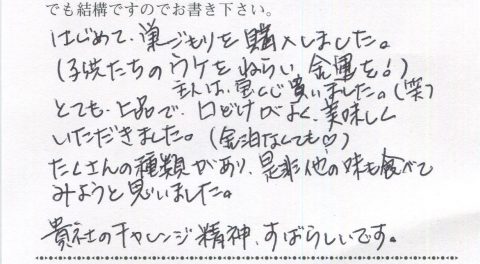 でも結構ですのでお書き下さい。
はじめて、巣ごもりを購入しました。
(子供たちのウケをねらい金運を!)
主人は、宝くじ買いました。(笑)
とても、上品で、口どけがよく、美味しく
いただきました。(金泊なくても♡)
たくさんの種類があり、是非他の味も食べて
みようと思いました。
貴社のチャレンジ精神、すばらしいです。